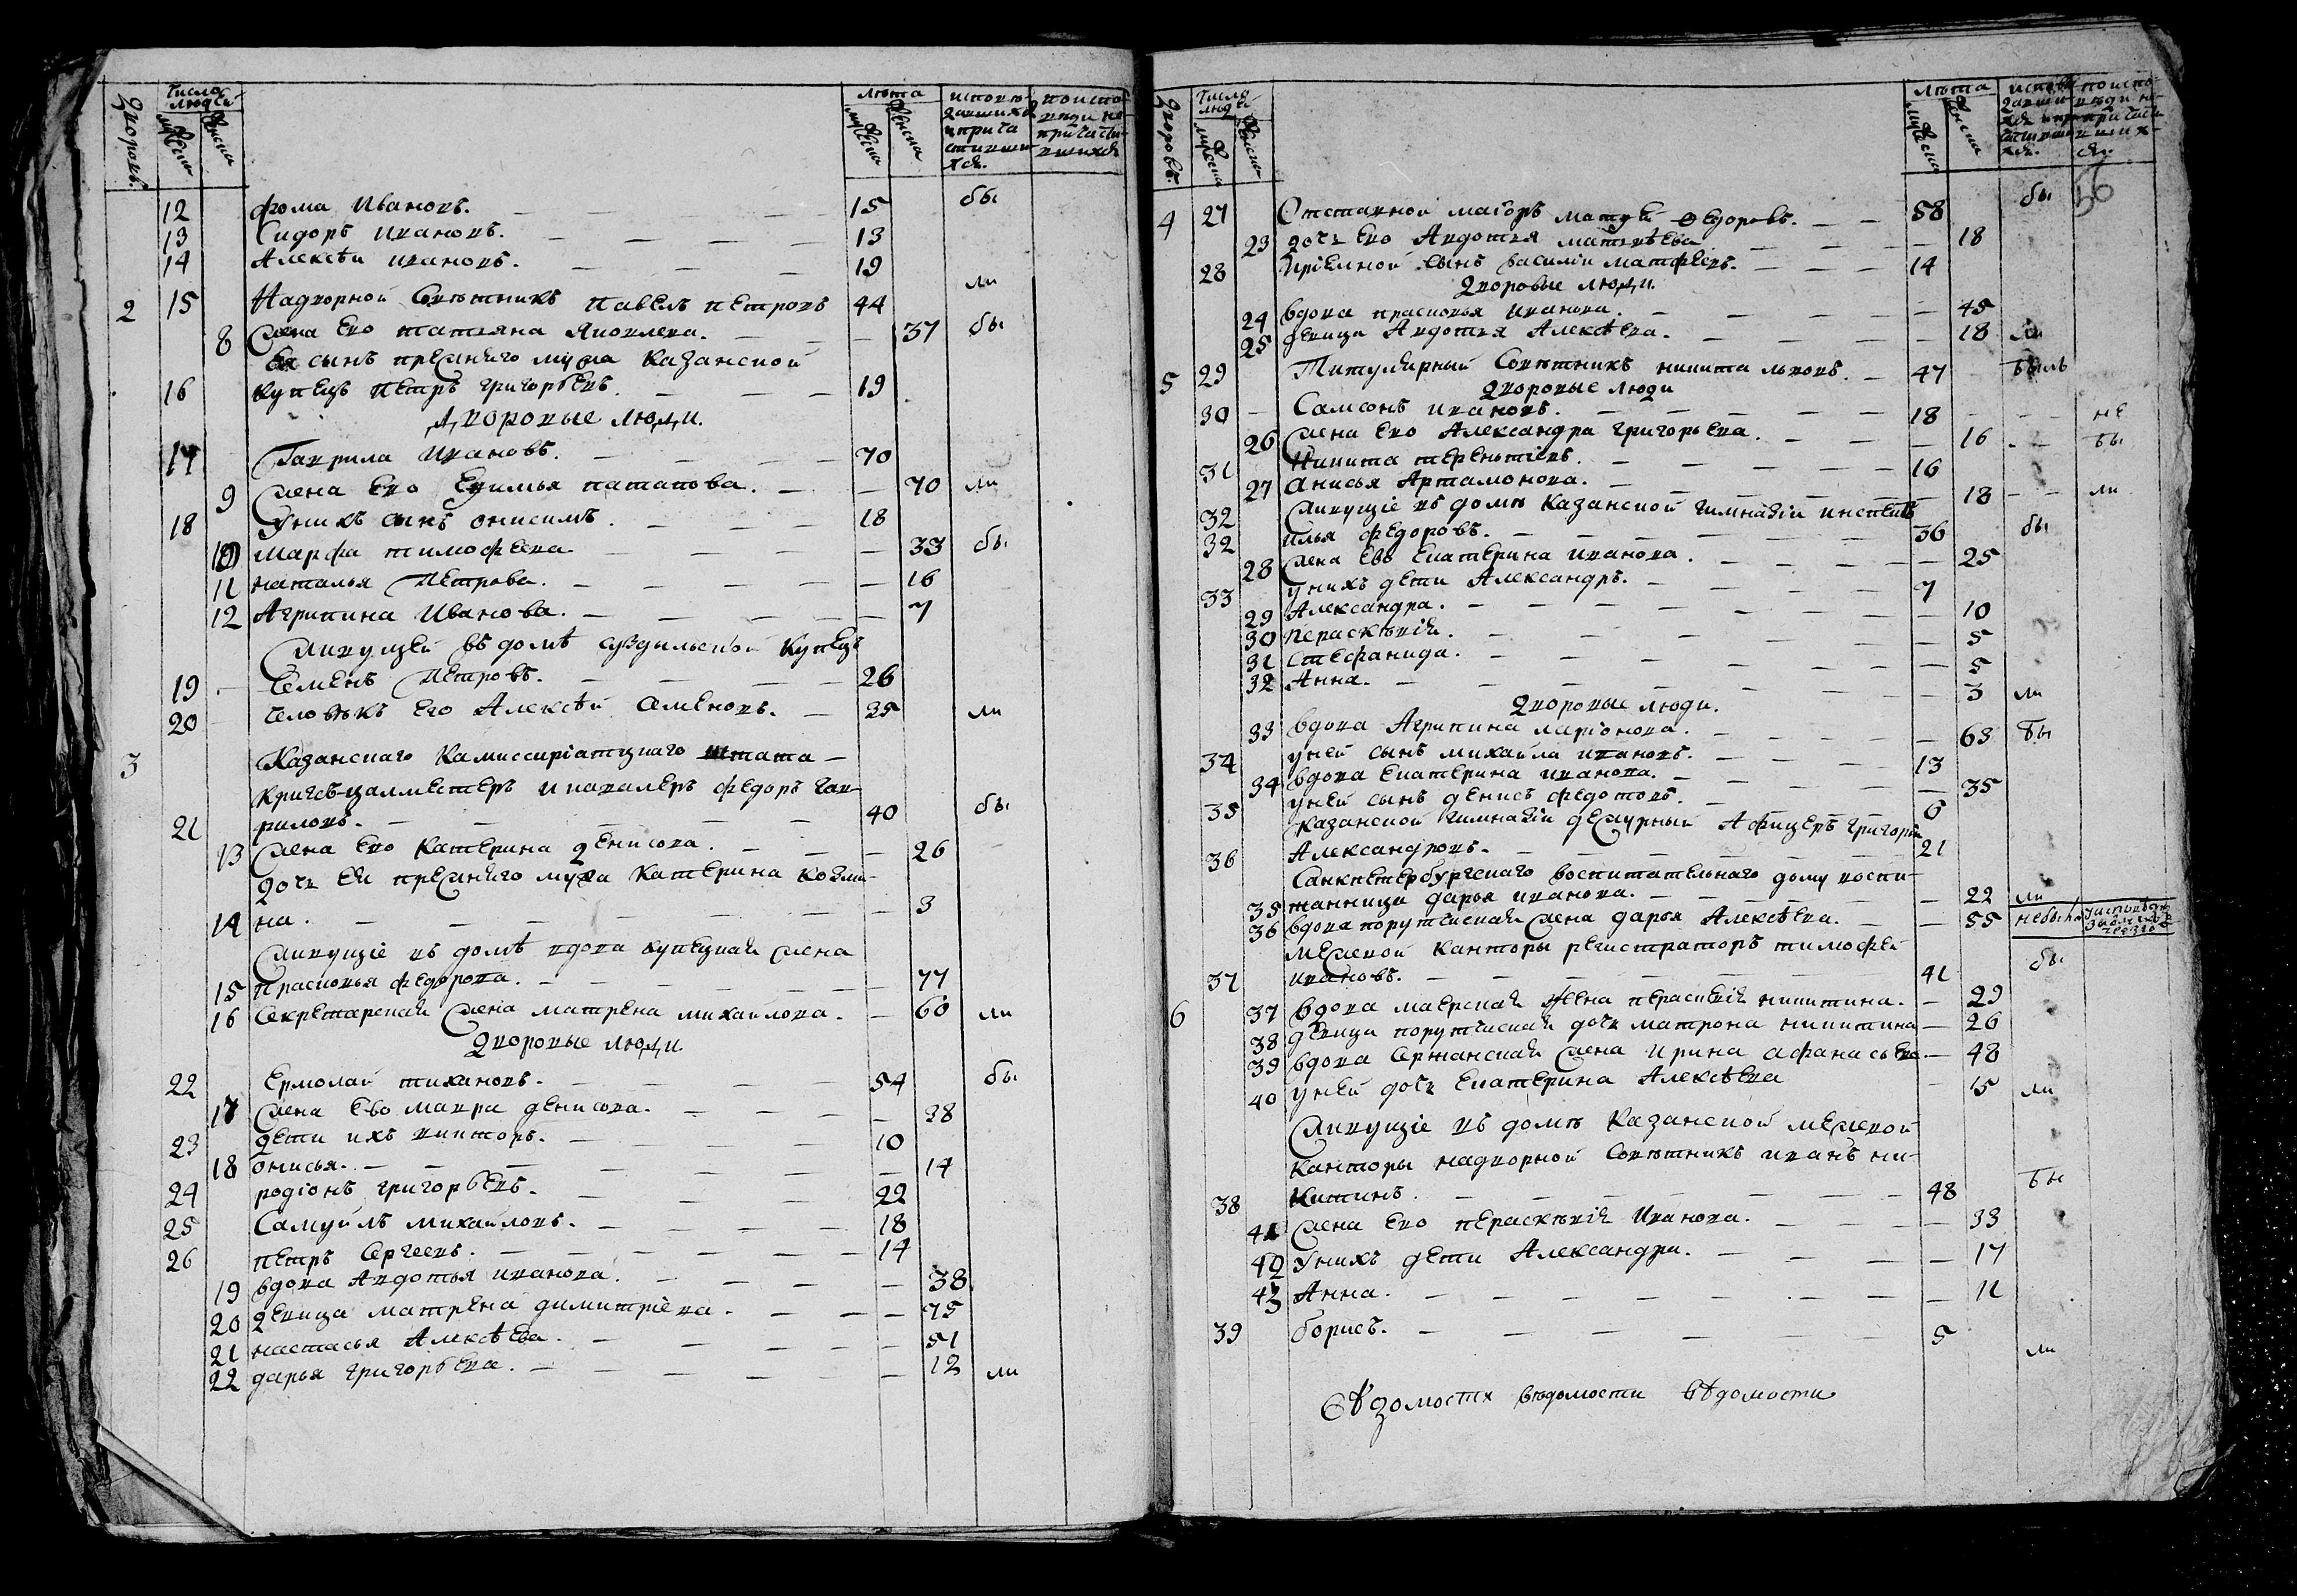 Дворовъ.
Число людей
мужеска
женска
лѣта
мужеска
женска
исповѣдавшихся и причастившихся.
по исповѣди не причастившихся
12 Фома Ивановъ. 15 бы
13 Сидоръ Ивановъ. 13
14 Алексѣи Ивановъ. 19
2 15 Надворной Совѣтникъ Павелъ Петровъ 44 ли
8 Жена Ево Татьяна Яковлева. 37 бы
Ея сынъ прежняго мужа Казанской
16 купецъ Петръ Григорьевъ. 19
Дворовые люди.
17 Гаврила Ивановъ. 70
9 Жена Ево Евимья Патапова. 70 ли
18 У нихъ сынъ Онисимъ 18
10 Марфа Тимофеева. 33 бы
11 Наталья Петрова. 16
12 Агрипина Иванова. 7
Живущей въ домѣ суздальской купецъ
19 Семенъ Петровъ. 26
20 Человѣкъ Его Алексѣй Семеновъ. 35 ли
3 Казанскаго Камиссиріатцкаго штата
Кригсъ-цалмейстеръ и кавалеръ Федоръ Гав-
21 риловъ. 40 бы
13 Жена Ево Катерина Денисова. 26
Дочь Еи прежняго мужа Катерина Козми-
14 на. 3
Живущіе въ домѣ вдова купецкая жена
15 Прасковья Федорова. 77
16 Секретарская Жена Матрена Михайлова. 60 ли
Дворовые люди.
22 Ермолай Тихановъ. 54 бы
17 Жена Ево Мавра Денисова. 38
23 Дети ихъ Викторъ. 10
18 Онисья. 14
24 Родіонъ Григорьевъ. 22
25 Самуилъ Михайловъ. 18
26 Петръ Сергеевъ. 14
19 Вдова Авдотья Иванова. 38
20 Девица Матрена Димитріева. 75
21 Настасья Алексѣева. 51
22 Дарья Григорьева. 12 ли
Дворовъ.
Число люде
мужеска
женска
лѣта
мужеска
женска
4 27 Отставной маіоръ Матвей Федоровъ. 58 бы
23 Дочь Ево Авдотья Матвѣева 18
28 Пріемной сынъ Василіи Матфеевъ. 14
Дворовые люди.
24 Вдова Прасковья Иванова. 45
25 Девица Авдотья Алексѣева. 18 ли
5 29 Титулярный Совѣтникъ Никита Львовъ. 47 былъ
Дворовые люди
30 Самсонъ Ивановъ. 18 не
26 Жена Ево Александра Григорьева. 16 бы
31 Никита Терентіевъ. 16
27 Анисья Артамонова. 18 ли
32 Живущіе въ домѣ Казанской Гимназіи инспекто
32 Илья Федоровъ. 36 бы
28 Жена Евъ Екатерина Иванова. 25
33 У нихъ дети Александръ. 7
29 Александра. 10
30 Пераскѣвія. 5
31 Стефанида. 5
32 Анна. 3 ли
Дворовые люди.
33 Вдова Агрипина Ларіонова. 63 бы
34 У ней сынъ Михайла Ивановъ. 13
34 Вдова Екатерина Иванова. 35
35 У ней сынъ Денисъ Федотовъ. 6
Казанской Гимназіи дежурный Афицеръ Григорій
36 Александровъ. 21
Санкпетербургскаго воспитательнаго дому воспи-
35 танница Дарья Иванова. 22 ли
36 Вдова порутчиская Жена Дарья Алексѣева. 55 небыла
Межевой Канторы регистраторъ Тимофей
37 Ивановъ. 41 бы
6 37 Вдова маерская Жена Пераскевія Никитина. 29
38 Девица порутчиская дочь Матрона Никитина 26
39 Вдова Сержанская Жена Ирина Афанасьева 48
40 У ней дочь Екатерина Алексѣева 15 ли
Живущіе въ домѣ Казанской Межевой
Канторы надворной Совѣтникъ Иванъ Ни-
38 китинъ. 48 бы
41 Жена Ево Пераскѣвія Иванова. 33
42 У нихъ дети Александра. 17
43 Анна. 11
39 Борисъ. 5 ли
вѣдомости вѣдомости